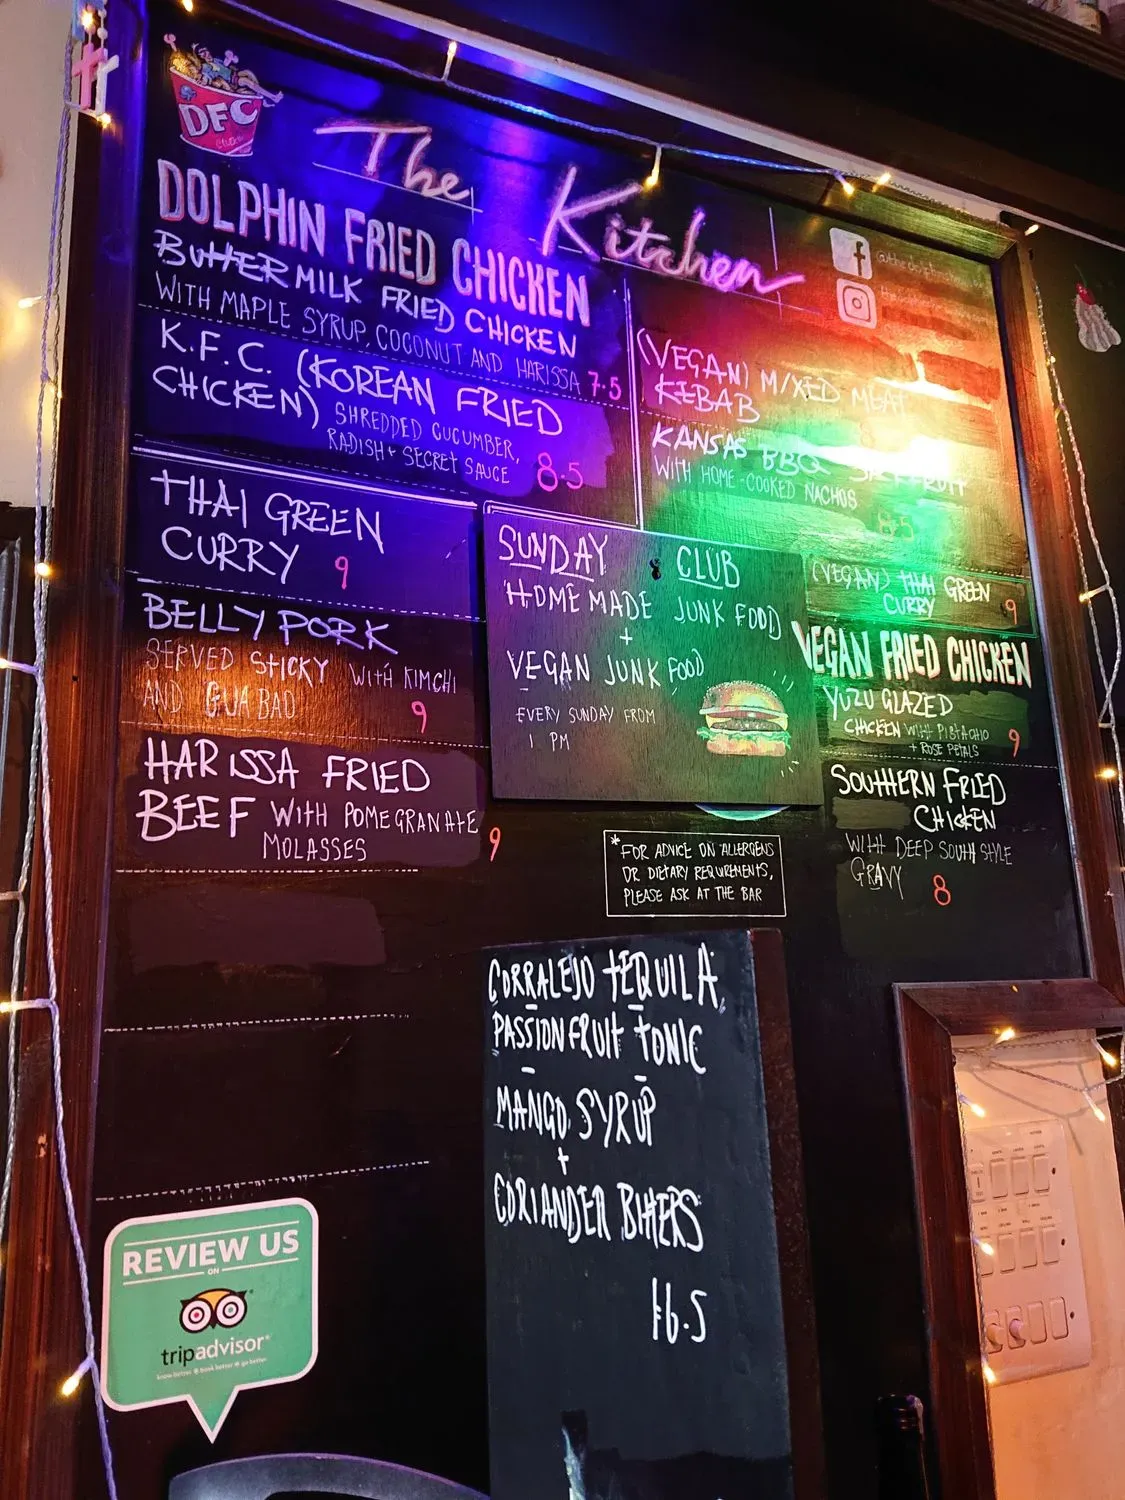 DFC
The Kitchen
DOLPHIN FRIED CHICKEN
BUTTERMILK FRIED CHICKEN
WITH MAPLE SYRUP, COCONUT AND HARISSA 7.5
K.F.C. (KOREAN FRIED
CHICKEN) SHREDDED CUCUMBER,
RADISH + SECRET SAUCE 8.5
THAI GREEN
CURRY 9
BELLY PORK
SERVED STICKY WITH KIMCHI
AND GUA BAO 9
HARISSA FRIED
BEEF WITH POMEGRANATE
MOLASSES 9
(VEGAN) MIXED MEAT
KEBAB
KANSAS BBQ
WITH HOME-COOKED NACHOS
8.5
(VEGAN) THAI GREEN
CURRY 9
VEGAN FRIED CHICKEN
YUZU GLAZED
CHICKEN WITH PISTACHIO
+ ROSE PETALS 9
SOUTHERN FRIED
CHICKEN
WITH DEEP SOUTH STYLE
GRAVY 8
SUNDAY CLUB
HOMEMADE JUNK FOOD
+
VEGAN JUNK FOOD
EVERY SUNDAY FROM
1 PM
*FOR ADVICE ON ALLERGENS
OR DIETARY REQUIREMENTS,
PLEASE ASK AT THE BAR
CORRALEJO TEQUILA,
PASSIONFRUIT TONIC
MANGO SYRUP
+
CORIANDER BITTERS
£6.5
REVIEW US
ON
tripadvisor
know better • book better • go better